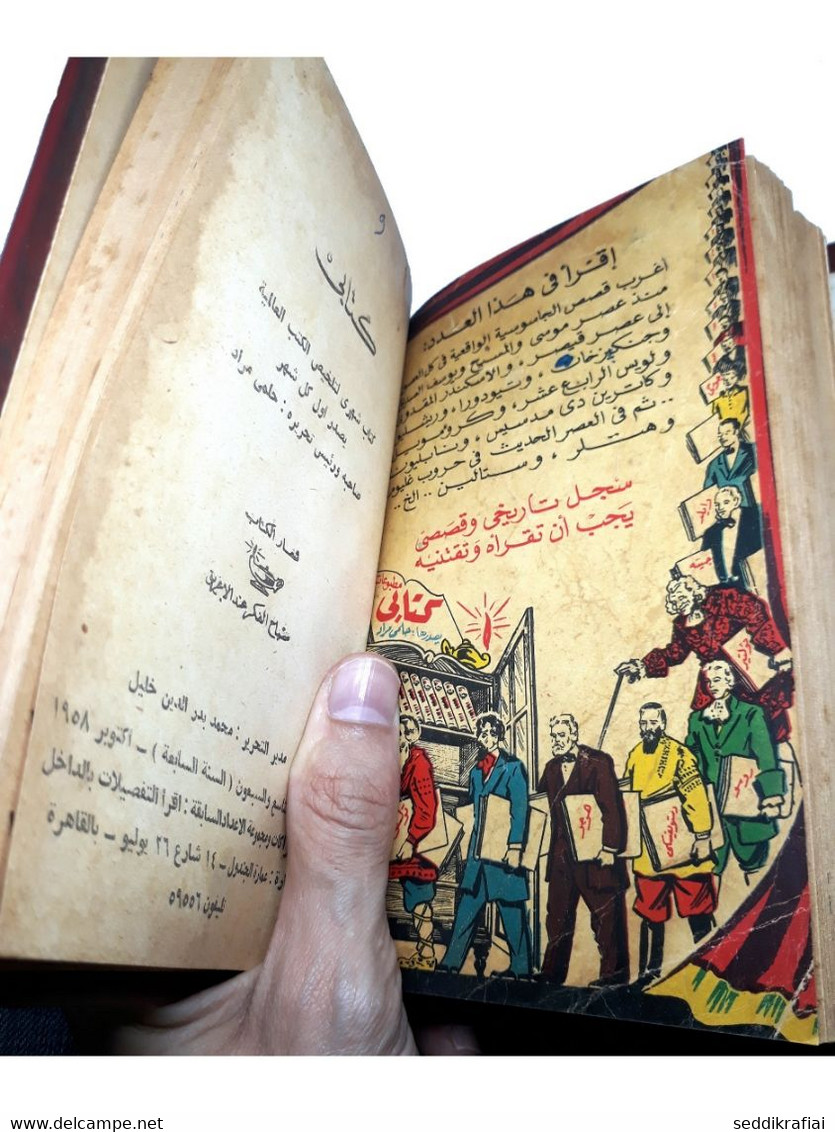 كتابي
كتاب شهري لتلخيص الكتب العالمية
يصدر أول كل شهر
صاحبه ورئيس تحريره : حلمى مراد
شعار الكتاب
مصباح الفكر عند الإغريق
مدير التحرير : محمد بدر الدين خليل
والسبعون ( السنة السابعة ) – اكتوبر ١٩٥٨
ومجموعة الاعداد السابقة : اقرأ التفصيلات بالداخل
عمارة الجندول – ١٤ شارع ٢٦ يوليو – بالقاهرة
تليفون ٥٩٥٥٦
إقرأ فى هذا العدد:
أغرب قصص الجاسوسية الواقعية فى كل
منذ عصر موسى والمسيح ويوسف
إلى عصر قيصر ، والاسكندر
وجنكيز خان ، وتيودورا ،
ولويس الرابع عشر ، وكرومويل
وكاترين دى مدسيس ، ونابليون
.. ثم فى العصر الحديث فى حروب غليوم
وهتلر ، وستالين .. الخ ..
سجل تاريخى وقصصى
يجب أن تقرأه وتقتنيه
مطبوعات
كتابي
يصدرها : حلمى مراد
جيته
فولتير
روسو
seddikrafiai
delcampe.net